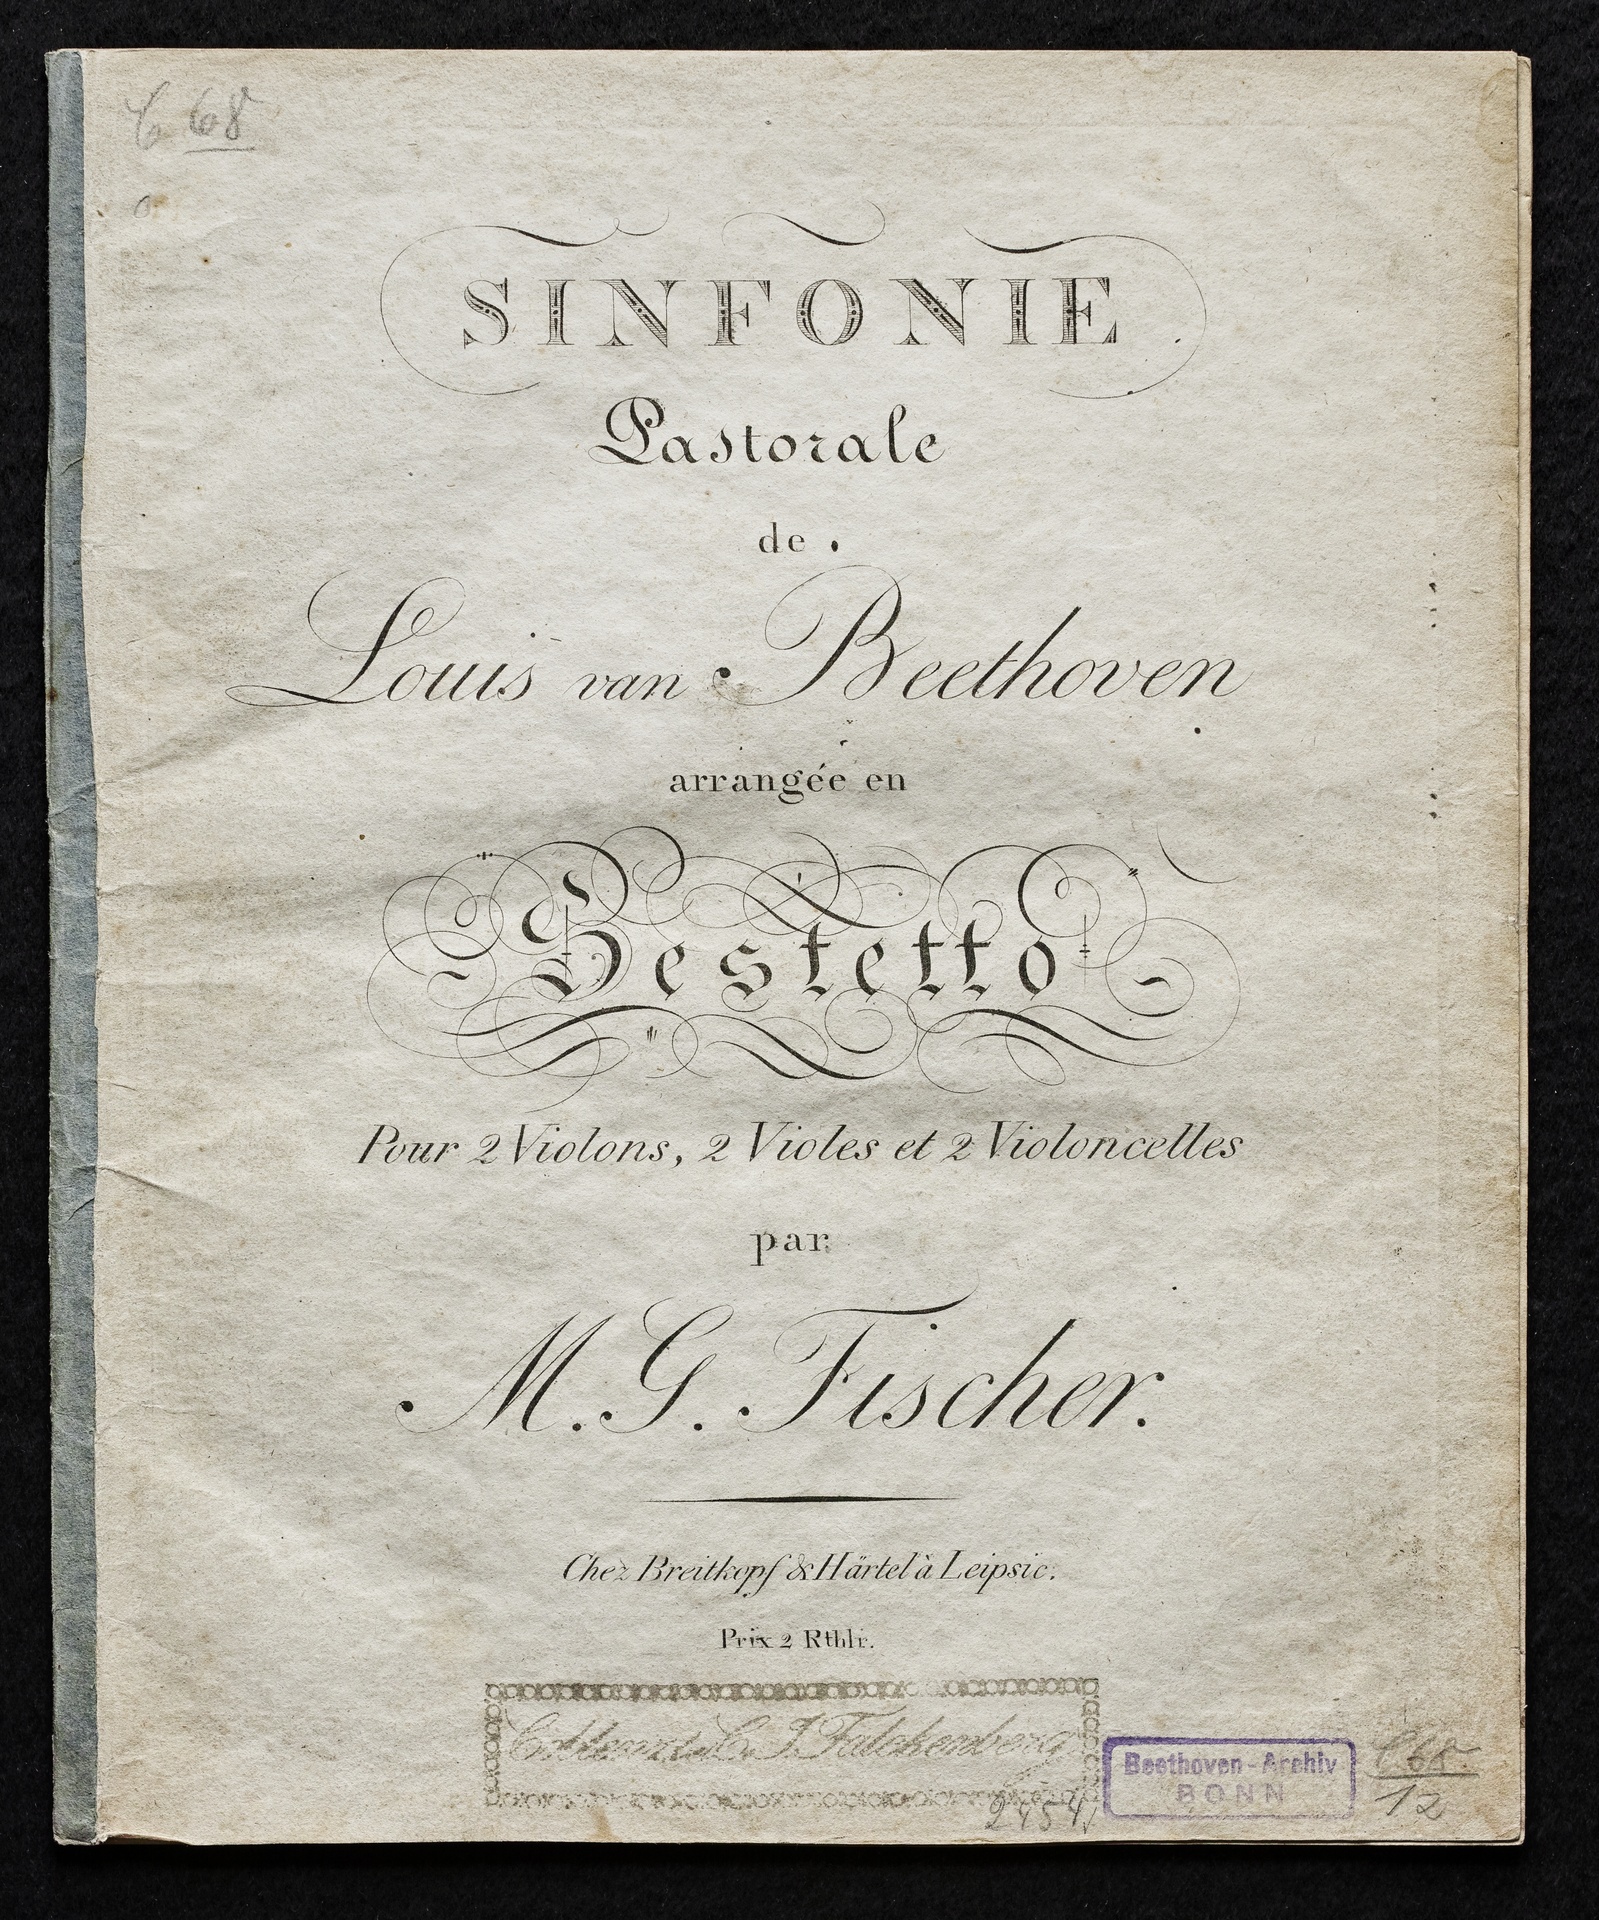 C 68
SINFONIE
Pastorale
de
Louis van Beethoven
arrangée en
Sestetto
Pour 2 Violons, 2 Violes et 2 Violoncelles
par
M. G. Fischer.
Chez Breitkopf & Härtel à Leipsic.
Prix 2 Rthlr.
C. J. Falckenberg
Beethoven-Archiv
BONN
C 68
12